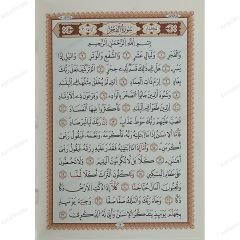 سُورَةُ الْفَجْرِ
بِسْمِ اللَّهِ الرَّحْمَٰنِ الرَّحِيمِ
وَالْفَجْرِ وَلَيَالٍ عَشْرٍ وَالشَّفْعِ وَالْوَتْرِ وَاللَّيْلِ إِذَا
يَسْرِ هَلْ فِي ذَٰلِكَ قَسَمٌ لِذِي حِجْرٍ أَلَمْ تَرَ كَيْفَ فَعَلَ رَبُّكَ
بِعَادٍ إِرَمَ ذَاتِ الْعِمَادِ الَّتِي لَمْ يُخْلَقْ مِثْلُهَا فِي الْبِلَادِ
وَثَمُودَ الَّذِينَ جَابُوا الصَّخْرَ بِالْوَادِ وَفِرْعَوْنَ ذِي الْأَوْتَادِ
الَّذِينَ طَغَوْا فِي الْبِلَادِ فَأَكْثَرُوا فِيهَا الْفَسَادَ
فَصَبَّ عَلَيْهِمْ رَبُّكَ سَوْطَ عَذَابٍ إِنَّ رَبَّكَ لَبِالْمِرْصَادِ
فَأَمَّا الْإِنْسَانُ إِذَا مَا ابْتَلَاهُ رَبُّهُ فَأَكْرَمَهُ وَنَعَّمَهُ فَيَقُولُ رَبِّي
أَكْرَمَنِ وَأَمَّا إِذَا مَا ابْتَلَاهُ فَقَدَرَ عَلَيْهِ رِزْقَهُ فَيَقُولُ رَبِّي
أَهَانَنِ كَلَّا بَلْ لَا تُكْرِمُونَ الْيَتِيمَ وَلَا تَحَاضُّونَ
عَلَىٰ طَعَامِ الْمِسْكِينِ وَتَأْكُلُونَ التُّرَاثَ أَكْلًا لَمًّا
وَتُحِبُّونَ الْمَالَ حُبًّا جَمًّا كَلَّا إِذَا دُكَّتِ الْأَرْضُ
دَكًّا دَكًّا وَجَاءَ رَبُّكَ وَالْمَلَكُ صَفًّا صَفًّا وَجِيءَ يَوْمَئِذٍ
بِجَهَنَّمَ يَوْمَئِذٍ يَتَذَكَّرُ الْإِنْسَانُ وَأَنَّىٰ لَهُ الذِّكْرَىٰ